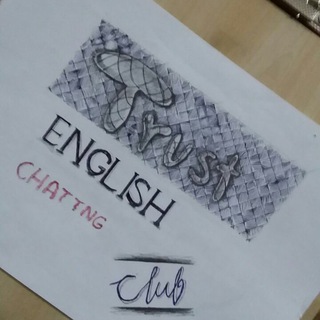 Trust
ENGLISH
CHATTNG
Club